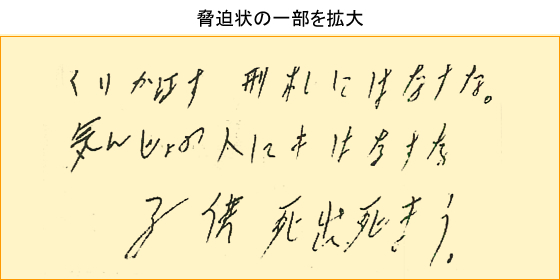 脅迫状の一部を拡大
くりかはす 刑札にはなすな。
気んじょの人にもはなすな
子供死出死まう。